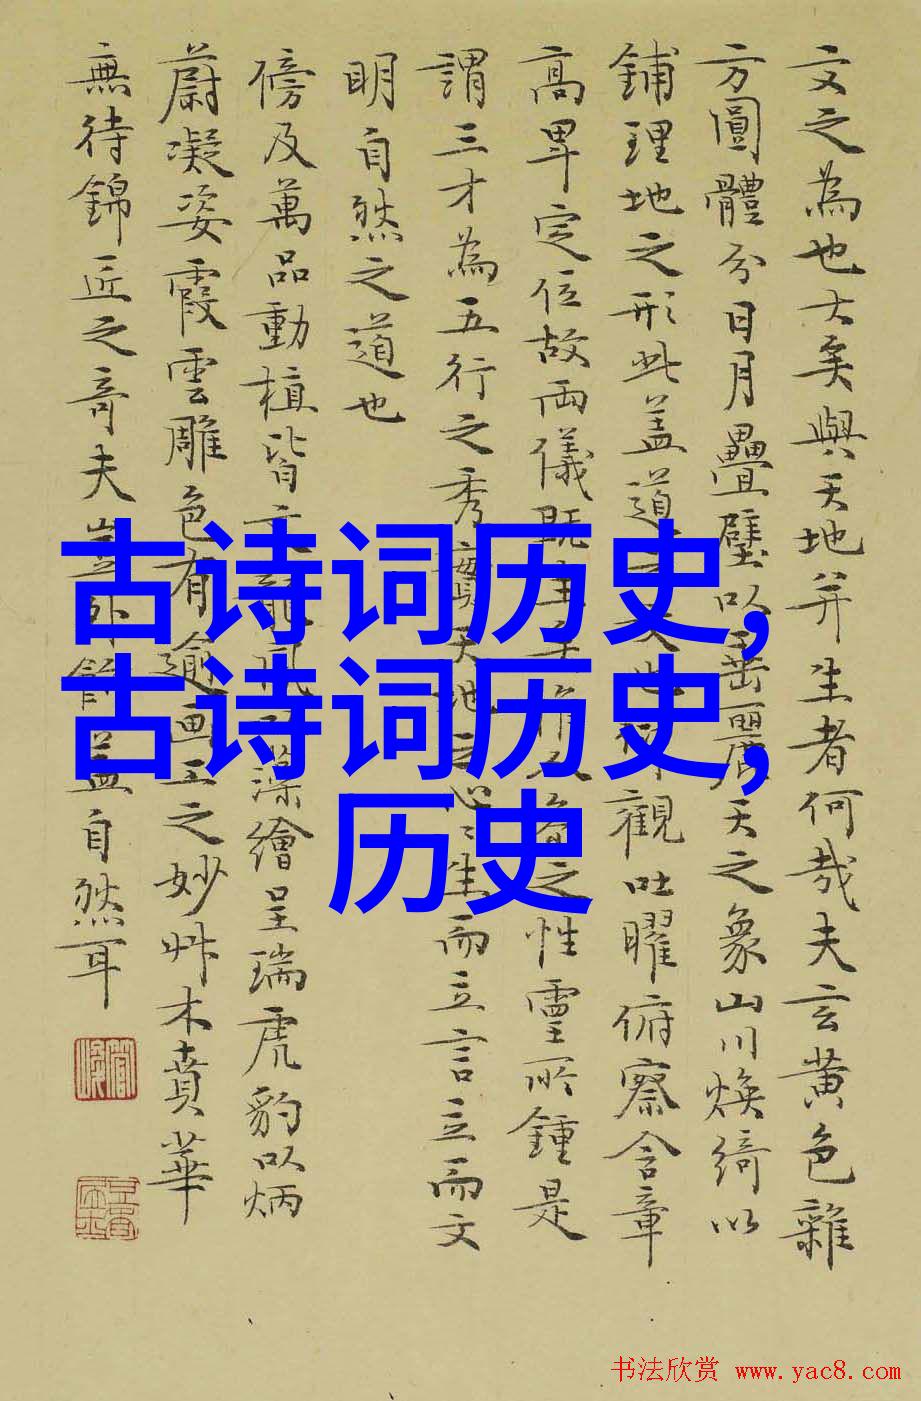 文之為也大矣與天地并生者何哉夫玄黃色雜
方圓體分日月疊璧以垂麗天之象山川煥綺以
鋪理地之形此盖道文也觀吐曜俯察含章
高卑定位故兩儀既生人之性靈所鍾是
謂三才為五行之秀實天地之心〻生而立言立而文
明自然之道也
傍及萬品動植皆文藻繪呈瑞虎豹以炳
蔚凝姿霞雲雕色有逾画工之妙艸木賁華
無待錦匠之奇夫豈外飾盖自然耳
古诗词历史,
古诗词历史,
历史
书法欣赏 www.yac8.com